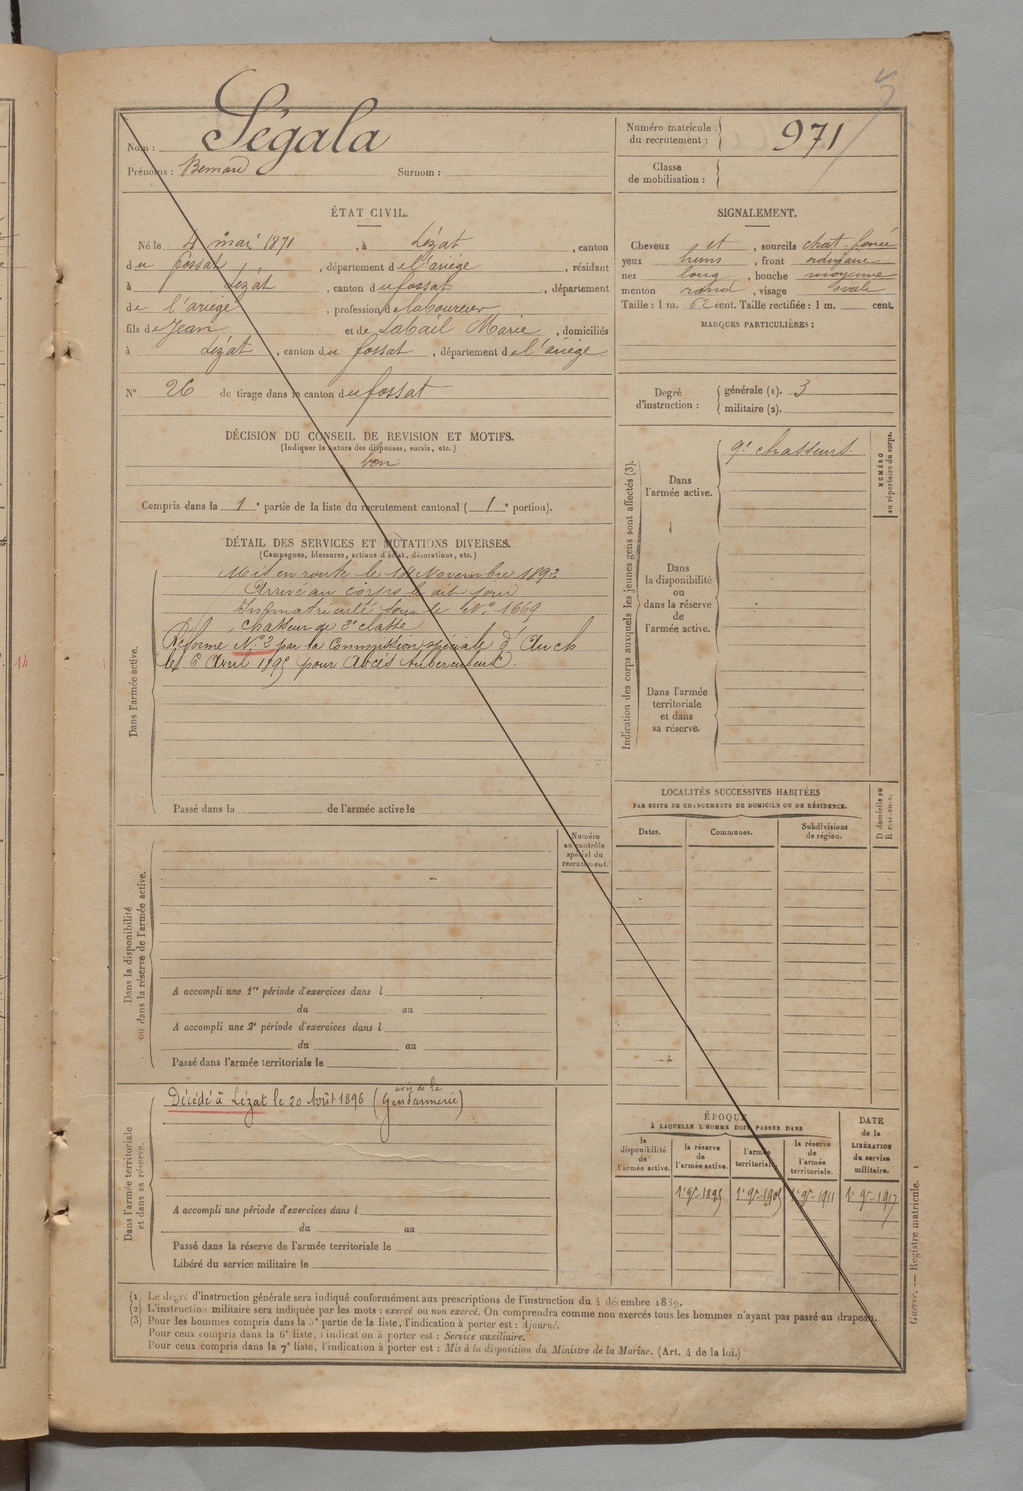 Nom : Ségala
Prénoms : Bernard Surnom :
Numéro matricule du recrutement : 971
Classe de mobilisation :
ÉTAT CIVIL.
Né le 4 mai 1871, à Lézat, canton
du fossat, département de l'ariége, résidant
à Lézat, canton du fossat, département
de l'ariége, profession de laboureur
fils de Jean et de Labail Marie, domiciliés
à Lézat, canton du fossat, département de l'ariége
N° 26 de tirage dans le canton du fossat
SIGNALEMENT.
Cheveux et, sourcils chat-foncé
yeux bruns, front ordinaire
nez long, bouche moyenne
menton rond, visage ovale
Taille : 1 m. 62 cent. Taille rectifiée : 1 m. cent.
MARQUES PARTICULIÈRES :
Degré d'instruction : générale (1). 3
militaire (2).
DÉCISION DU CONSEIL DE REVISION ET MOTIFS.
(Indiquer la nature des dispenses, sursis, etc.)
bon
Compris dans la 1e partie de la liste du recrutement cantonal ( 1e portion).
DÉTAIL DES SERVICES ET MUTATIONS DIVERSES.
(Campagnes, blessures, actions d'éclat, décorations, etc.)
Dans l'armée active.
Mis en route le Novembre 1892
Arrivé au corps le dit jour
Immatriculé sous le N° 1669
chasseur de 2e classe
Réformé N° 2 par la Commission spéciale d'Auch
le 6 Avril 1895 pour Abcès tuberculeux.
Passé dans la de l'armée active le
Indication des corps auxquels les jeunes gens sont affectés (3).
NUMÉRO au répertoire du corps.
Dans l'armée active.
9e chasseurs.
Dans la disponibilité ou dans la réserve de l'armée active.
Dans l'armée territoriale et dans sa réserve.
LOCALITÉS SUCCESSIVES HABITÉES
PAR SUITE DE CHANGEMENTS DE DOMICILE OU DE RÉSIDENCE.
Dates. Communes. Subdivisions de région. D domicile ou R résidence.
Numéro au contrôle spécial du recrutement.
Dans la disponibilité ou dans la réserve de l'armée active.
A accompli une 1re période d'exercices dans l
du au
A accompli une 2e période d'exercices dans l
du au
Passé dans l'armée territoriale le
Dans l'armée territoriale et dans sa réserve.
Décédé à Lézat le 20 Août 1896 (avis de la Gendarmerie)
A accompli une période d'exercices dans l
du au
Passé dans la réserve de l'armée territoriale le
Libéré du service militaire le
ÉPOQUE
À LAQUELLE L'HOMME DOIT PASSER DANS
la disponibilité de l'armée active. la réserve de l'armée active. l'armée territoriale. la réserve de l'armée territoriale.
DATE de la LIBÉRATION du service militaire.
1er 9bre 1895 1er 9bre 1905 1er 9bre 1911 1er 9bre 1917
Guerre. — Registre matricule. 1
(1) Le degré d'instruction générale sera indiqué conformément aux prescriptions de l'instruction du 4 décembre 1889.
(2) L'instruction militaire sera indiquée par les mots : exercé ou non exercé. On comprendra comme non exercés tous les hommes n'ayant pas passé au drapeau.
(3) Pour les hommes compris dans la 5e partie de la liste, l'indication à porter est : Ajourné.
Pour ceux compris dans la 6e liste, l'indication à porter est : Service auxiliaire.
Pour ceux compris dans la 7e liste, l'indication à porter est : Mis à la disposition du Ministre de la Marine. (Art. 4 de la loi.)